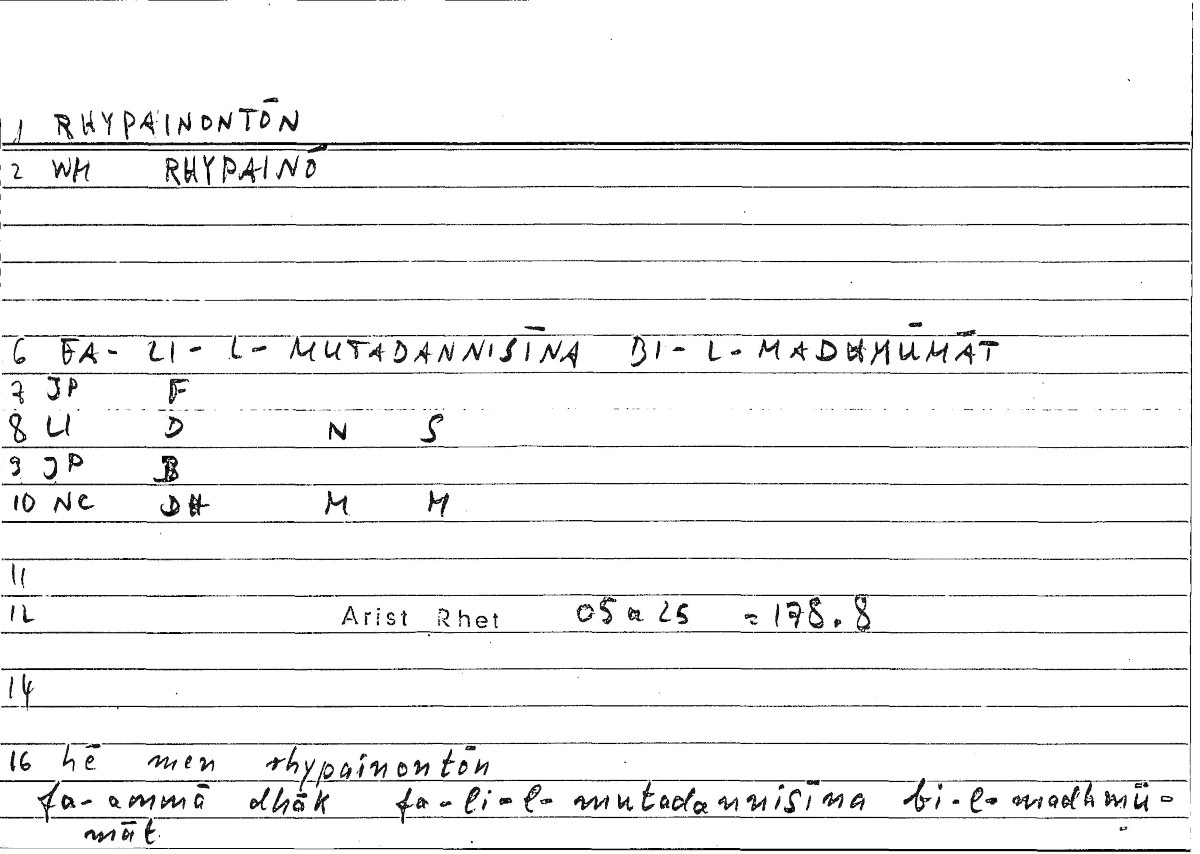 1 RHYPAINONTŌN
2 WH RHYPAINŌ
6 FA- LI- L- MUTADANNISĪNA BI- L- MADHMŪMĀT
7 JP F
8 LI D N S
9 JP B
10 NC DH M M
11
12 Arist Rhet 05a25 = 178.8
14
16 hē men rhypainontōn
fa-ammā dhāk fa-li-l-mutadannisīna bi-l-madhmū-
māt.